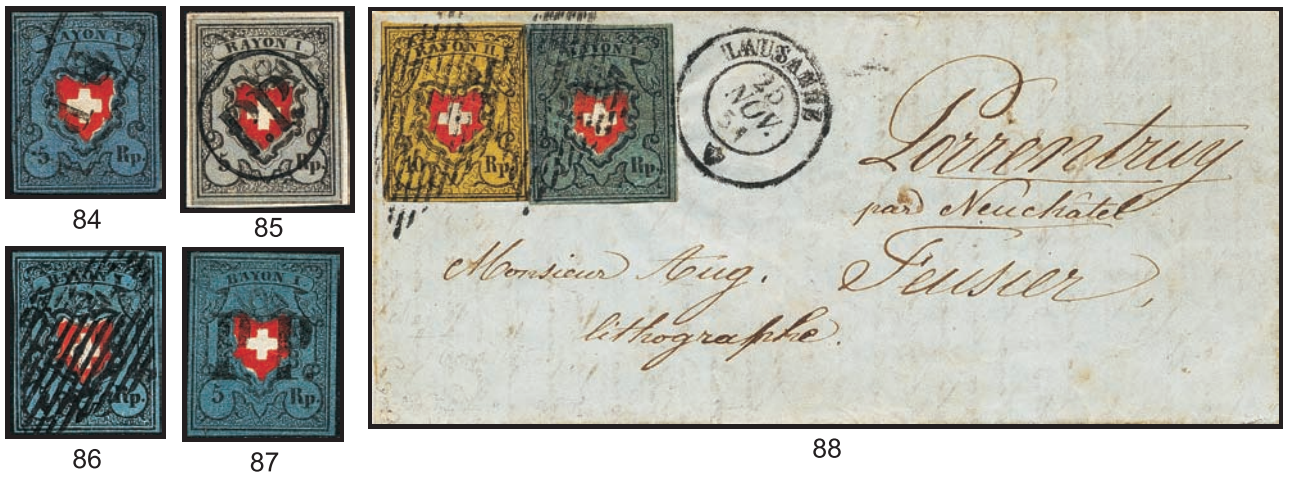 RAYON I
5 Rp.
84
RAYON I
5 Rp.
85
RAYON I
Rp.
86
RAYON I
PP
5 Rp.
87
RAYON II
10 Rp.
RAYON I
Rp.
LAUSANNE
25
NOV.
51
Porrentruy
par Neuchâtel
Monsieur Aug. Feusier,
lithographe.
88